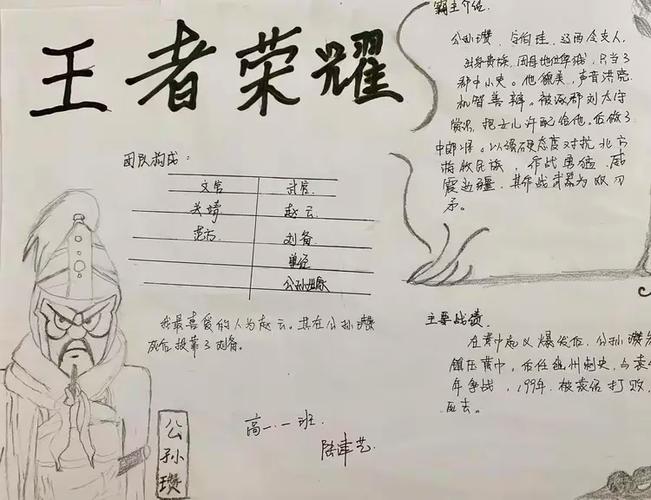 王者荣耀
团队构成：
文官 武官
关靖 赵云
范方 刘备
单经
公孙
我最喜爱的人为赵云。其在公孙瓒
死后投靠了刘备。
公孙瓒
高一.一班
陆津艺
霸主介绍.
公孙瓒，字伯珪，辽西令支人.
出身贵族，因母地位卑贱，只当了
郡中小吏。他貌美，声音洪亮
机智善辩。被涿郡刘太守
赏识，把女儿许配给他。后做了
中郎将。以强硬态度对抗北方
游牧民族，作战勇猛，威
震边疆，其作战武器为双刃
矛。
主要战绩.
在黄巾起义爆发后，公孙瓒
镇压黄巾，后任幽州刺史，与袁
年争战，199年，被袁绍打败，
死去。